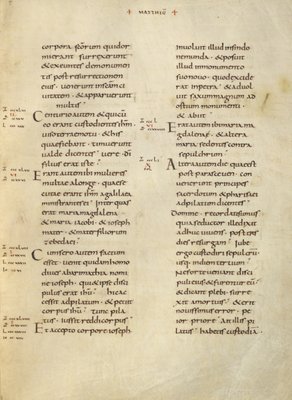 + MATTHEU +
corpora scorum qui dor
mierant surrexerunt
& exeuntes de monumen
tis post resurrectionem
eius uenerunt in sanctam
ciuitatem & apparuerunt
multis
Centurio autem & qui cu
eo erant custodientes ihm
uiso terraemotu & his
quae fiebant timuerunt
ualde dicentes uere di
filius erat iste
Erant autem ibi mulieres
multae a longe quae se
cutae erant ihm a galilaea
ministrantes ei Inter quas
erat maria magdalena
& maria iacobi & ioseph
mater & mater filiorum
zebedaei
Cum sero autem factum
esset uenit quidam homo
diues ab arimathia nomi
ne ioseph qui & ipse disci
pulus erat ihu hic ac
cessit ad pilatum & petiit
corpus ihu tunc pila
tus iussit reddi corpus
Et accepto corpore ioseph
inuoluit illud in sindo
ne munda & posuit
illud in monumento
suo nouo quod excide
rat in petra & aduol
uit saxum magnum ad
ostium monumenti
& abiit
Erat autem ibi maria ma
gdalenae & altera
maria sedentes contra
sepulchrum
Altera autem die quae est
post parasceuen con
uenerunt principes
sacerdotum & pharisaei
ad pilatum dicentes
Domine recordati sumus
quia seductor ille dixit
adhuc uiuens post tres
dies resurgam Iube
ergo custodiri sepulcrum
usq; in diem tertium
Ne forte ueniant disci
puli eius & furentur eu
& dicant plebi surre
xit a mortuis & erit
nouissimus error pe
ior priore Ait illis pi
latus habetis custodia